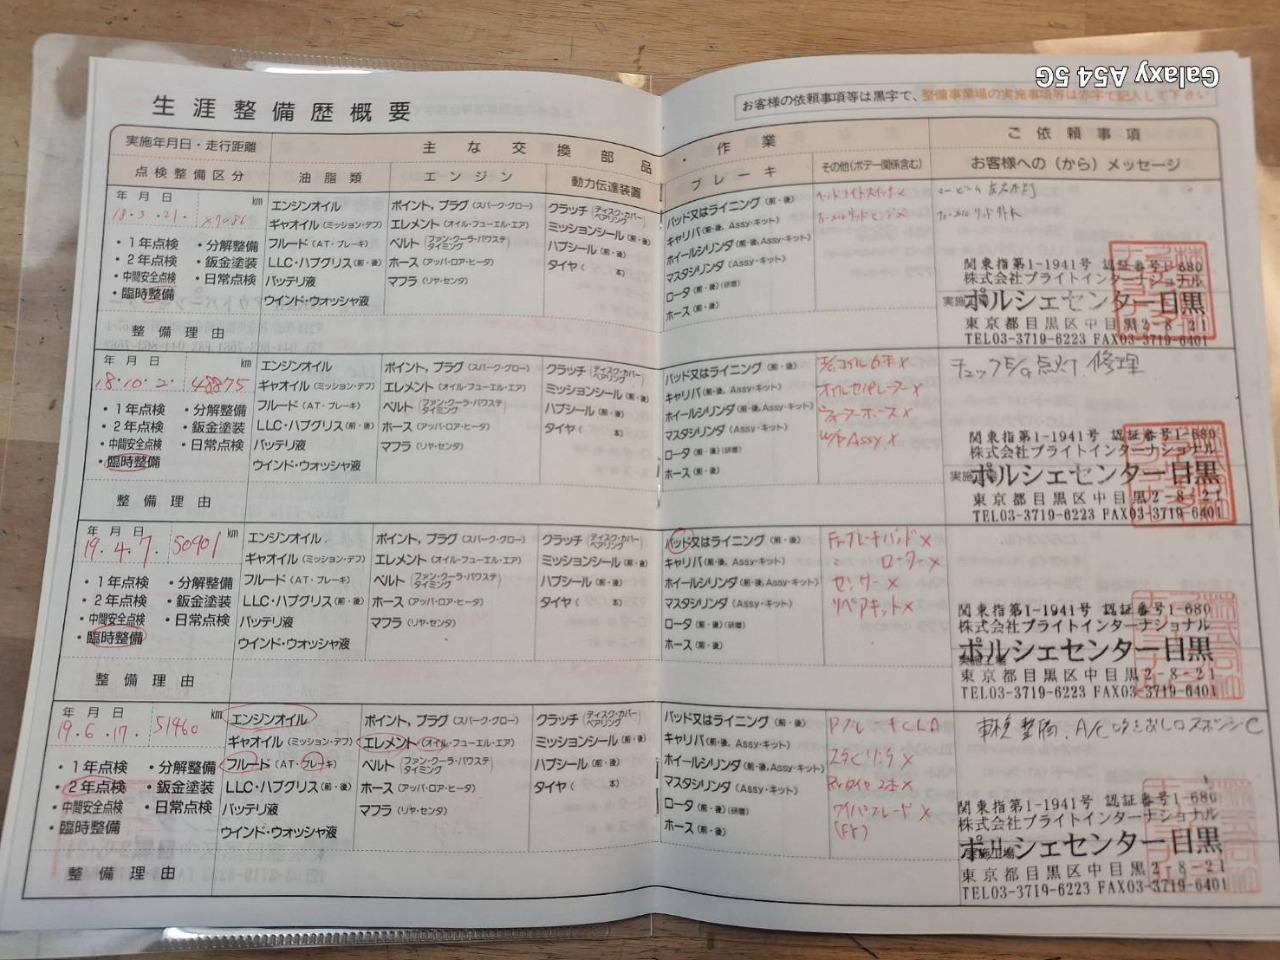 Galaxy A54 5G
生涯整備歴概要
お客様の依頼事項等は黒字で、整備事業場の実施事項等は赤字で記入して下さい
実施年月日・走行距離
主な交換部品・作業
ご依頼事項
点検整備区分
油脂類
エンジン
動力伝達装置
ブレーキ
その他(ボデー関係含む)
お客様への(から)メッセージ
年 月 日 km
18.3.21.
エンジンオイル
ポイント, プラグ(スパーク・グロー)
クラッチ(ディスク・カバー ベアリング)
パッド又はライニング(前・後)
ヘッドライトスイッチ×
ギャオイル(ミッション・デフ)
エレメント(オイル・フューエル・エア)
ミッションシール(前・後)
キャリパ(前・後, Assy・キット)
・1年点検 ・分解整備
フルード(AT・ブレーキ)
ベルト(ファン・クーラ・パワステ タイミング)
ハブシール(前・後)
ホイールシリンダ(前・後, Assy・キット)
・2年点検 ・鈑金塗装
LLC・ハブグリス(前・後)
ホース(アッパ・ロア・ヒータ)
タイヤ( 本)
マスタシリンダ(Assy・キット)
・中間安全点検 ・日常点検
バッテリ液
マフラ(リヤ・センタ)
ロータ(前・後)(研磨)
・臨時整備
ウインド・ウォッシャ液
ホース(前・後)
整備理由
関東指第1-1941号 認証番号1-680
株式会社ブライトインターナショナル
実施工場
ポルシェセンター目黒
東京都目黒区中目黒2-8-21
TEL03-3719-6223 FAX03-3719-6401
年 月 日 km
18.10.2. 48875
エンジンオイル
ポイント, プラグ(スパーク・グロー)
クラッチ(ディスク・カバー ベアリング)
パッド又はライニング(前・後)
チェックE/g点灯 修理
ギャオイル(ミッション・デフ)
エレメント(オイル・フューエル・エア)
ミッションシール(前・後)
キャリパ(前・後, Assy・キット)
オイルセパレーター×
・1年点検 ・分解整備
フルード(AT・ブレーキ)
ベルト(ファン・クーラ・パワステ タイミング)
ハブシール(前・後)
ホイールシリンダ(前・後, Assy・キット)
ウォーターホース×
・2年点検 ・鈑金塗装
LLC・ハブグリス(前・後)
ホース(アッパ・ロア・ヒータ)
タイヤ( 本)
マスタシリンダ(Assy・キット)
W/P Assy×
・中間安全点検 ・日常点検
バッテリ液
マフラ(リヤ・センタ)
ロータ(前・後)(研磨)
・臨時整備
ウインド・ウォッシャ液
ホース(前・後)
整備理由
関東指第1-1941号 認証番号1-680
株式会社ブライトインターナショナル
実施工場
ポルシェセンター目黒
東京都目黒区中目黒2-8-21
TEL03-3719-6223 FAX03-3719-6401
年 月 日 km
19.4.7. 50901
エンジンオイル
ポイント, プラグ(スパーク・グロー)
クラッチ(ディスク・カバー ベアリング)
パッド又はライニング(前・後)
Frブレーキパッド×
ギャオイル(ミッション・デフ)
エレメント(オイル・フューエル・エア)
ミッションシール(前・後)
キャリパ(前・後, Assy・キット)
ローター×
・1年点検 ・分解整備
フルード(AT・ブレーキ)
ベルト(ファン・クーラ・パワステ タイミング)
ハブシール(前・後)
ホイールシリンダ(前・後, Assy・キット)
センサー×
・2年点検 ・鈑金塗装
LLC・ハブグリス(前・後)
ホース(アッパ・ロア・ヒータ)
タイヤ( 本)
マスタシリンダ(Assy・キット)
リペアキット×
・中間安全点検 ・日常点検
バッテリ液
マフラ(リヤ・センタ)
ロータ(前・後)(研磨)
・臨時整備
ウインド・ウォッシャ液
ホース(前・後)
整備理由
関東指第1-1941号 認証番号1-680
株式会社ブライトインターナショナル
実施工場
ポルシェセンター目黒
東京都目黒区中目黒2-8-21
TEL03-3719-6223 FAX03-3719-6401
年 月 日 km
19.6.17. 51460
エンジンオイル
ポイント, プラグ(スパーク・グロー)
クラッチ(ディスク・カバー ベアリング)
パッド又はライニング(前・後)
車検整備.
ギャオイル(ミッション・デフ)
エレメント(オイル・フューエル・エア)
ミッションシール(前・後)
キャリパ(前・後, Assy・キット)
・1年点検 ・分解整備
フルード(AT・ブレーキ)
ベルト(ファン・クーラ・パワステ タイミング)
ハブシール(前・後)
ホイールシリンダ(前・後, Assy・キット)
・2年点検 ・鈑金塗装
LLC・ハブグリス(前・後)
ホース(アッパ・ロア・ヒータ)
タイヤ( 本)
マスタシリンダ(Assy・キット)
Rrタイヤ 2本×
・中間安全点検 ・日常点検
バッテリ液
マフラ(リヤ・センタ)
ロータ(前・後)(研磨)
ワイパーブレード×
・臨時整備
ウインド・ウォッシャ液
ホース(前・後)
(Fr)
整備理由
関東指第1-1941号 認証番号1-680
株式会社ブライトインターナショナル
実施工場
ポルシェセンター目黒
東京都目黒区中目黒2-8-21
TEL03-3719-6223 FAX03-3719-6401